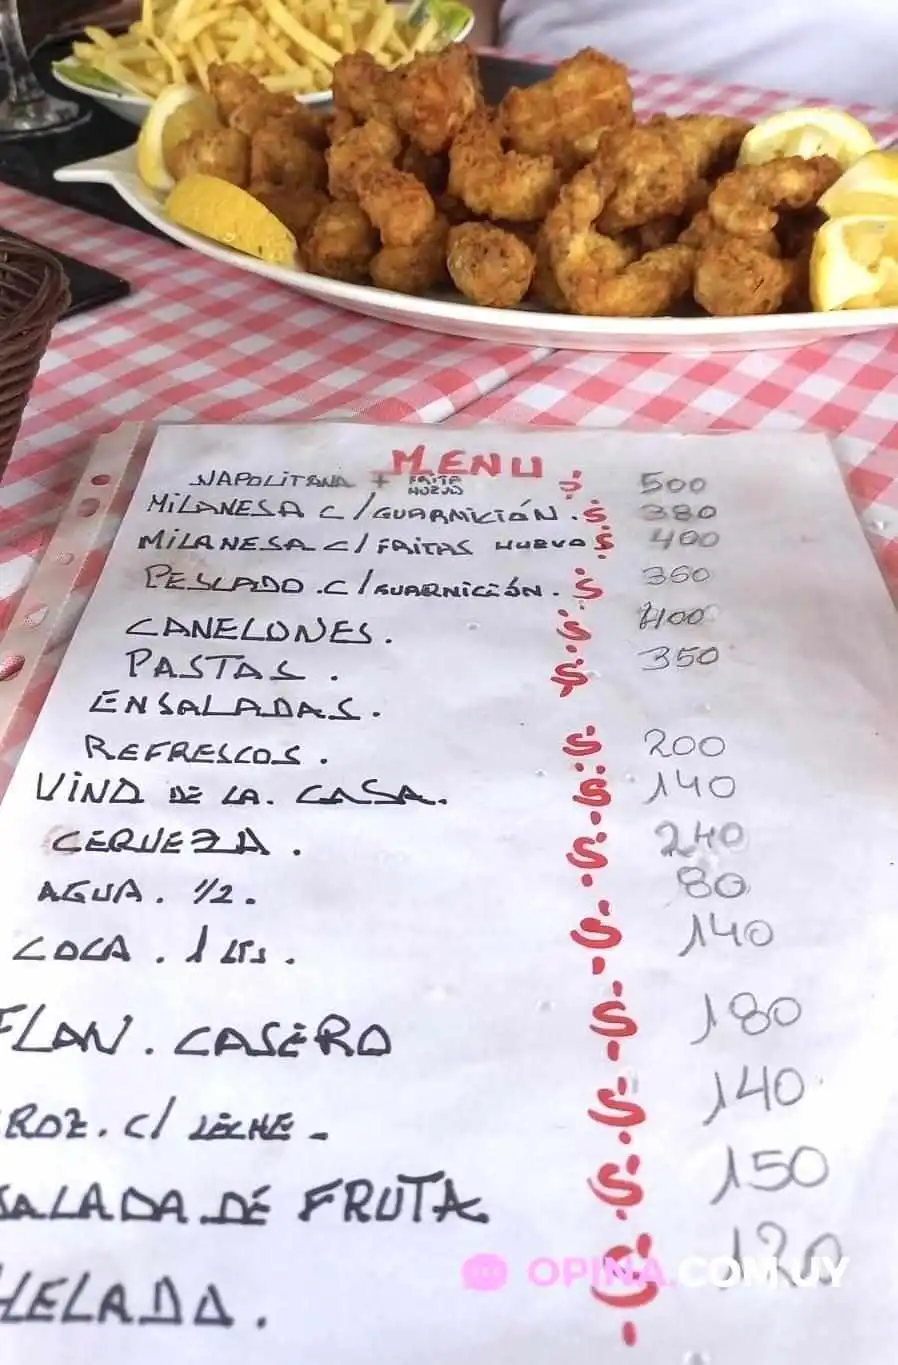 MENU
NAPOLITANA + FRITA HUEVO $ 500
MILANESA C/GUARNICIÓN. $ 380
MILANESA C/FRITAS HUEVO $ 400
PESCADO .C/GUARNICIÓN. $ 360
CANELONES. $ 400
PASTAS. $ 350
ENSALADAS.
REFRESCOS. $ 200
VINO DE LA. CASA. $ 140
CERVEZA. $ 240
AGUA. 1/2. $ 80
COCA. 1 LTS. $ 140
FLAN. CASERO $ 180
ROZ. C/ LECHE - $ 140
SALADA DE FRUTA $ 150
HELADO. $ 120
OPINA.COM.UY